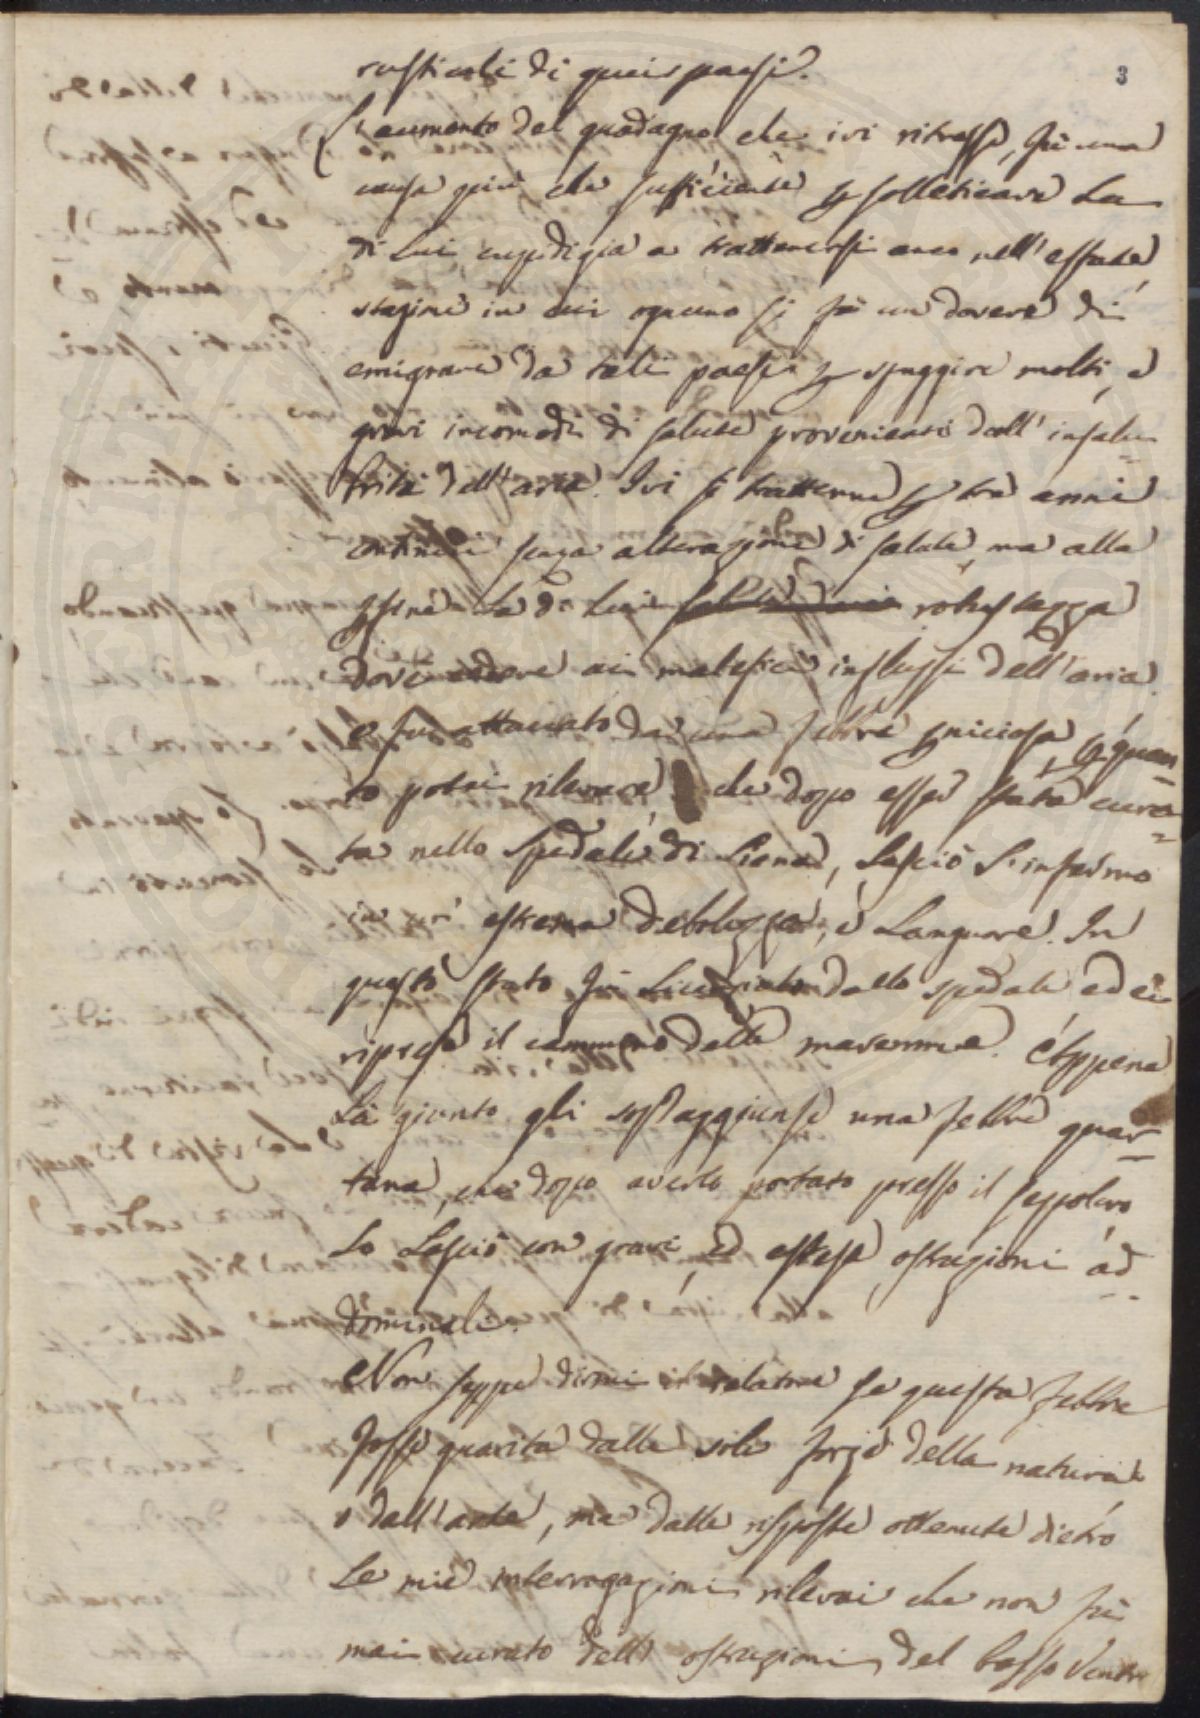 3
rusticali di quei paesi.
L'aumento del guadagno che ivi ritrasse, fù una
causa più che sufficiente p solleticare La
di Lui cupidigia a trattenersi anco nell'estate,
stagione in cui ognuno si fà un dovere di
emigrare da tali paesi p sfuggire molti, e
gravi incomodi di salute provenienti dall'insalu-
brità dell'aria. Ivi si trattenne p tre anni
continui senza alterazione di salute, ma alla
pfine La di Lui robustezza
dovè cedere ai malefici influssi dell'aria
e fu attaccato da una febbre pniciosa, p quan-
to potei rilevare che dopo esser stata cura-
ta nello Spedale di Siena, Lasciò L'infermo
in un' estrema debolezza, e Languore. In
questo stato fù Licenziato dallo spedale ed ei
riprese il cammino delle maremme. Appena
Là giunto gli sopraggiunse una febbre quar-
tana, che dopo averlo portato presso il sepolcro
Lo Lasciò con gravi, ed estese ostruzioni ad-
dominali.
Non seppe dirmi il relatore se questa febbre
fosse guarita dalle sole forze della natura
o dall'arte, ma dalle risposte ottenute dietro
Le mie interrogazioni rilevai che non fù
mai curato dell' ostruzioni del basso Ventre